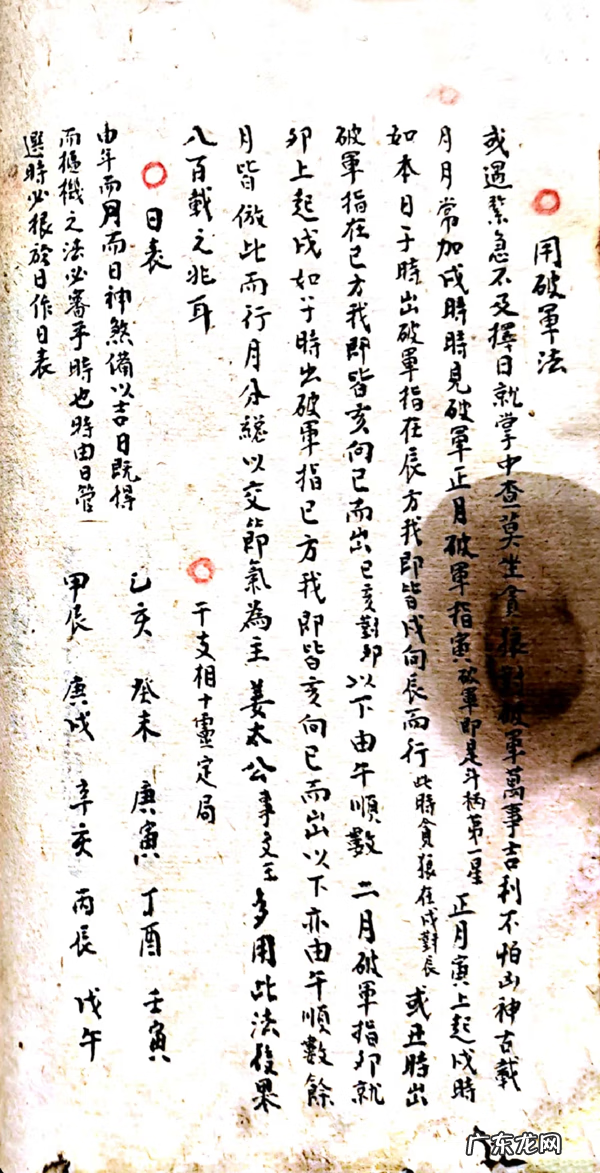 用破軍法
或遇緊急不及擇日就掌中查莫坐貪狼對破軍萬事吉利不怕凶神古載
月月常加戌時時見破軍正月破軍指寅破軍即是斗柄第一星正月寅上起戌時
如本日子時出破軍指在辰方我即皆戌向辰而行此時貪狼在戌對辰或丑時出
破軍指在巳方我即皆亥向巳而出巳亥對卯以下由午順數二月破軍指卯就
卯上起戌如子時出破軍指巳方我即皆亥向巳而出以下亦由午順數餘
月皆倣此而行月分總以交節氣為主姜太公事文王多用此法後果
八百載之兆耳
日表
由年而月而日神煞備以吉日既得
而樞機之法必審乎時也時由日管
選時必根於日作日表
干支相十靈定局
乙亥 癸未 庚寅 丁酉 壬寅
甲辰 庚戌 辛亥 丙辰 戊午
广东龙网